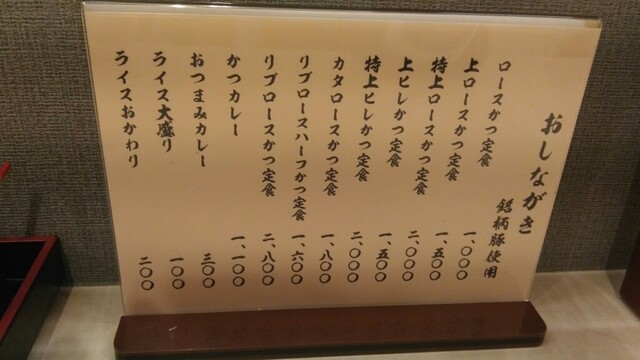 おしながき
銘柄豚使用
ロースかつ定食 一、〇〇〇
上ロースかつ定食 一、五〇〇
特上ロースかつ定食 二、〇〇〇
上ヒレかつ定食 一、五〇〇
特上ヒレかつ定食 二、〇〇〇
カタロースかつ定食 一、八〇〇
リブロースハーフかつ定食 一、六〇〇
リブロースかつ定食 二、八〇〇
かつカレー 一、一〇〇
おつまみカレー 三〇〇
ライス大盛り 一〇〇
ライスおかわり 二〇〇